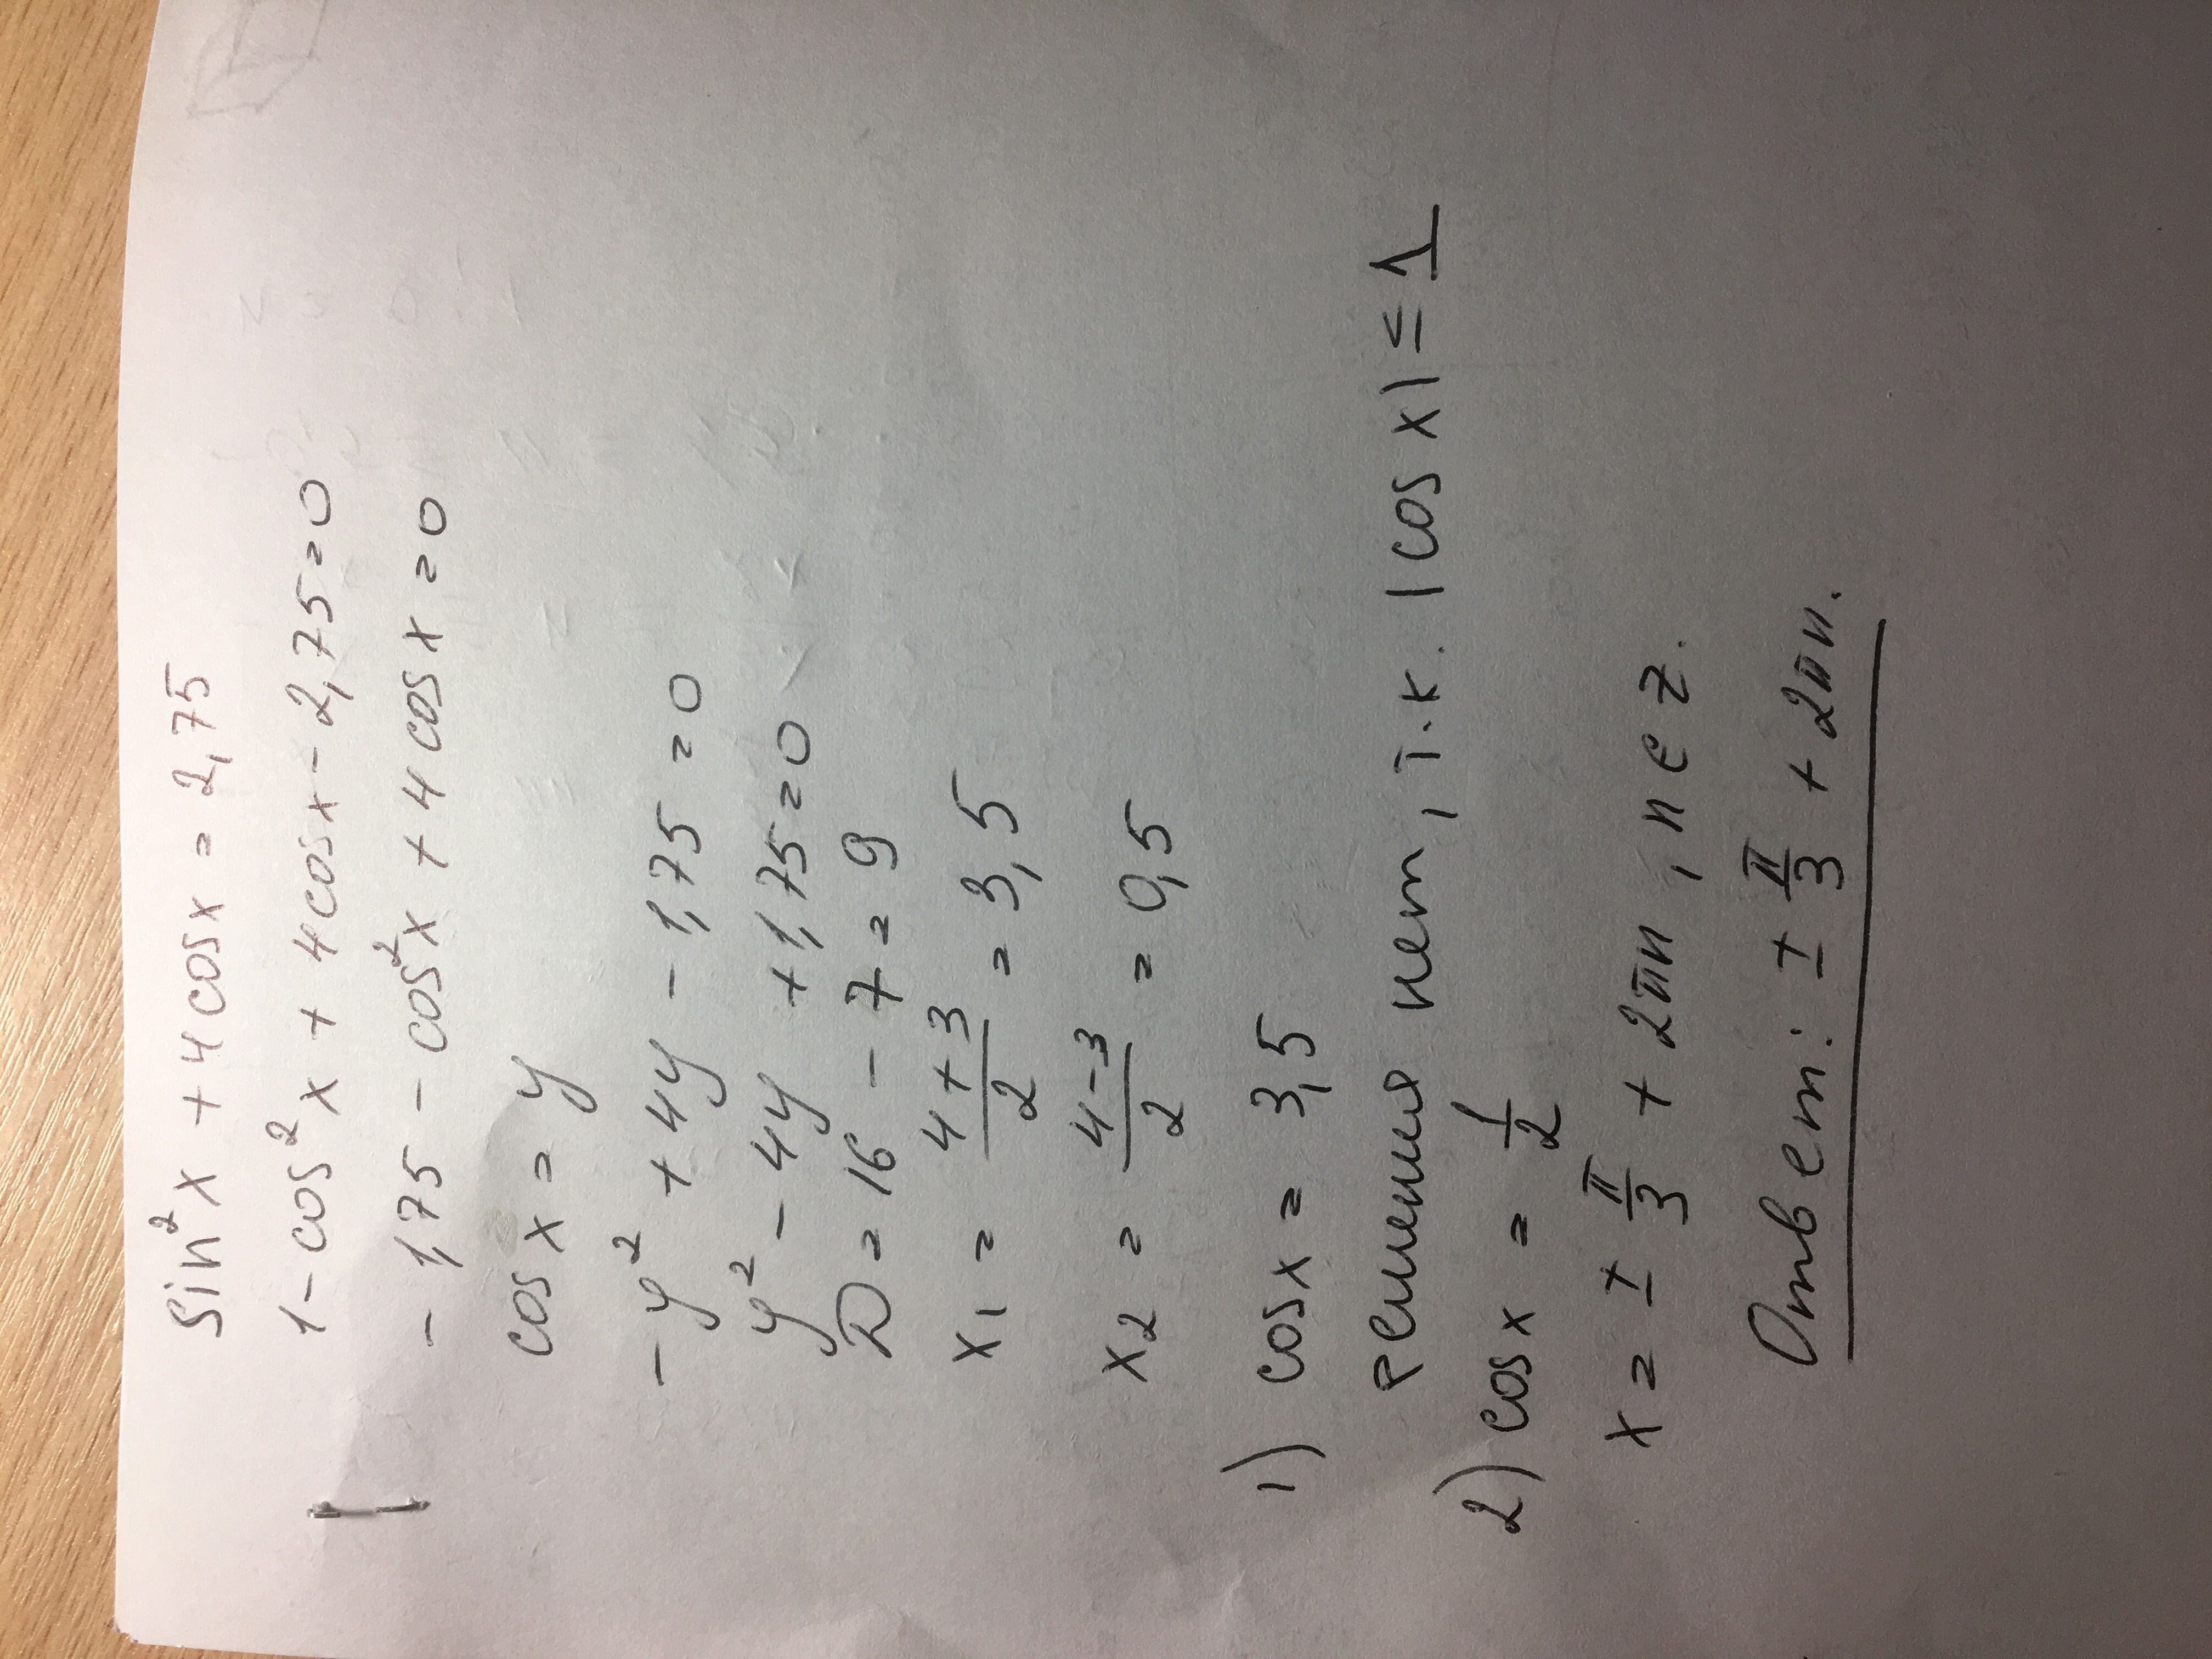 sin²x + 4cosx = 2,75
1 - cos²x + 4cosx - 2,75 = 0
- 1,75 - cos²x + 4cosx = 0
cosx = y
- y² + 4y - 1,75 = 0
y² - 4y + 1,75 = 0
D = 16 - 7 = 9
x₁ = (4+3)/2 = 3,5
x₂ = (4-3)/2 = 0,5
1) cosx = 3,5
решения нет, т.к. |cosx| ≤ 1
2) cosx = 1/2
x = ± π/3 + 2πn, n ∈ Z.
Ответ: ± π/3 + 2πn.